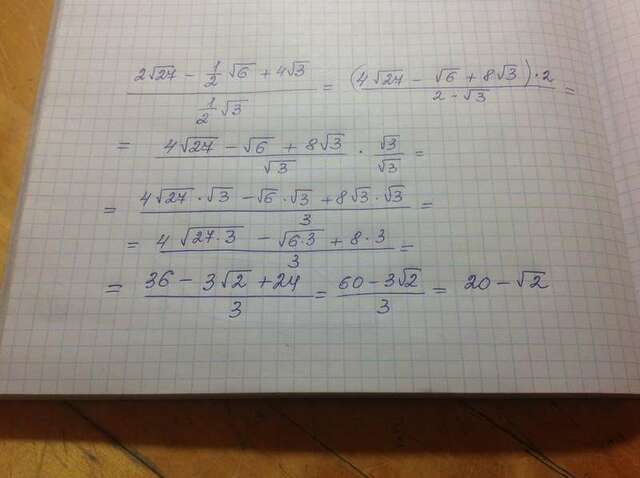 (2√27 - 1/2 √6 + 4√3) / (1/2 √3) = ((4√27 - √6 + 8√3) · 2) / (2 - √3) =
= (4√27 - √6 + 8√3) / √3 · √3/√3 =
= (4√27 · √3 - √6 · √3 + 8√3 · √3) / 3 =
= (4√(27·3) - √(6·3) + 8·3) / 3 =
= (36 - 3√2 + 24) / 3 = (60 - 3√2) / 3 = 20 - √2